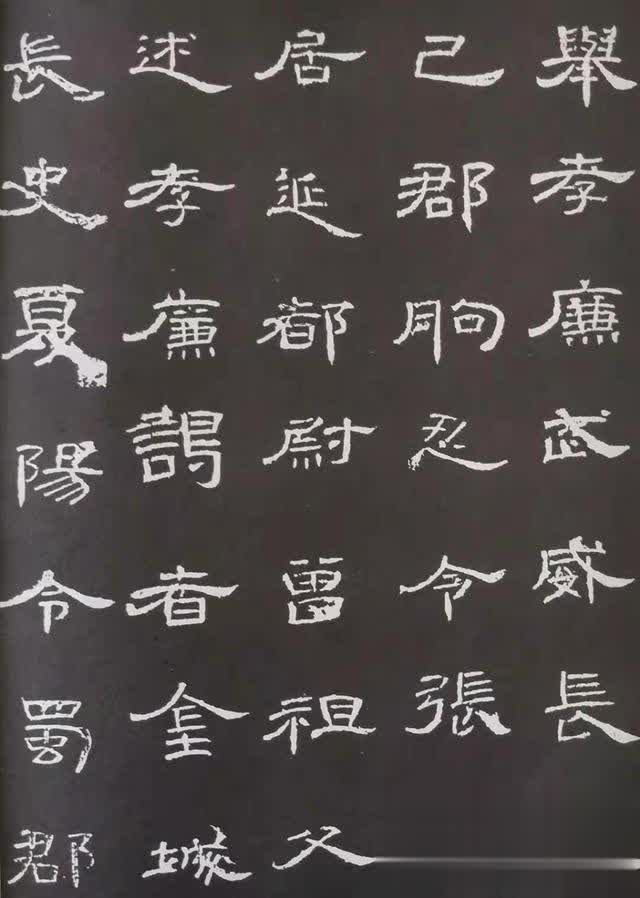 舉孝廉武威長
巴郡朐忍令張
居延都尉曾祖父
述孝廉謁者金城
長史夏陽令蜀郡